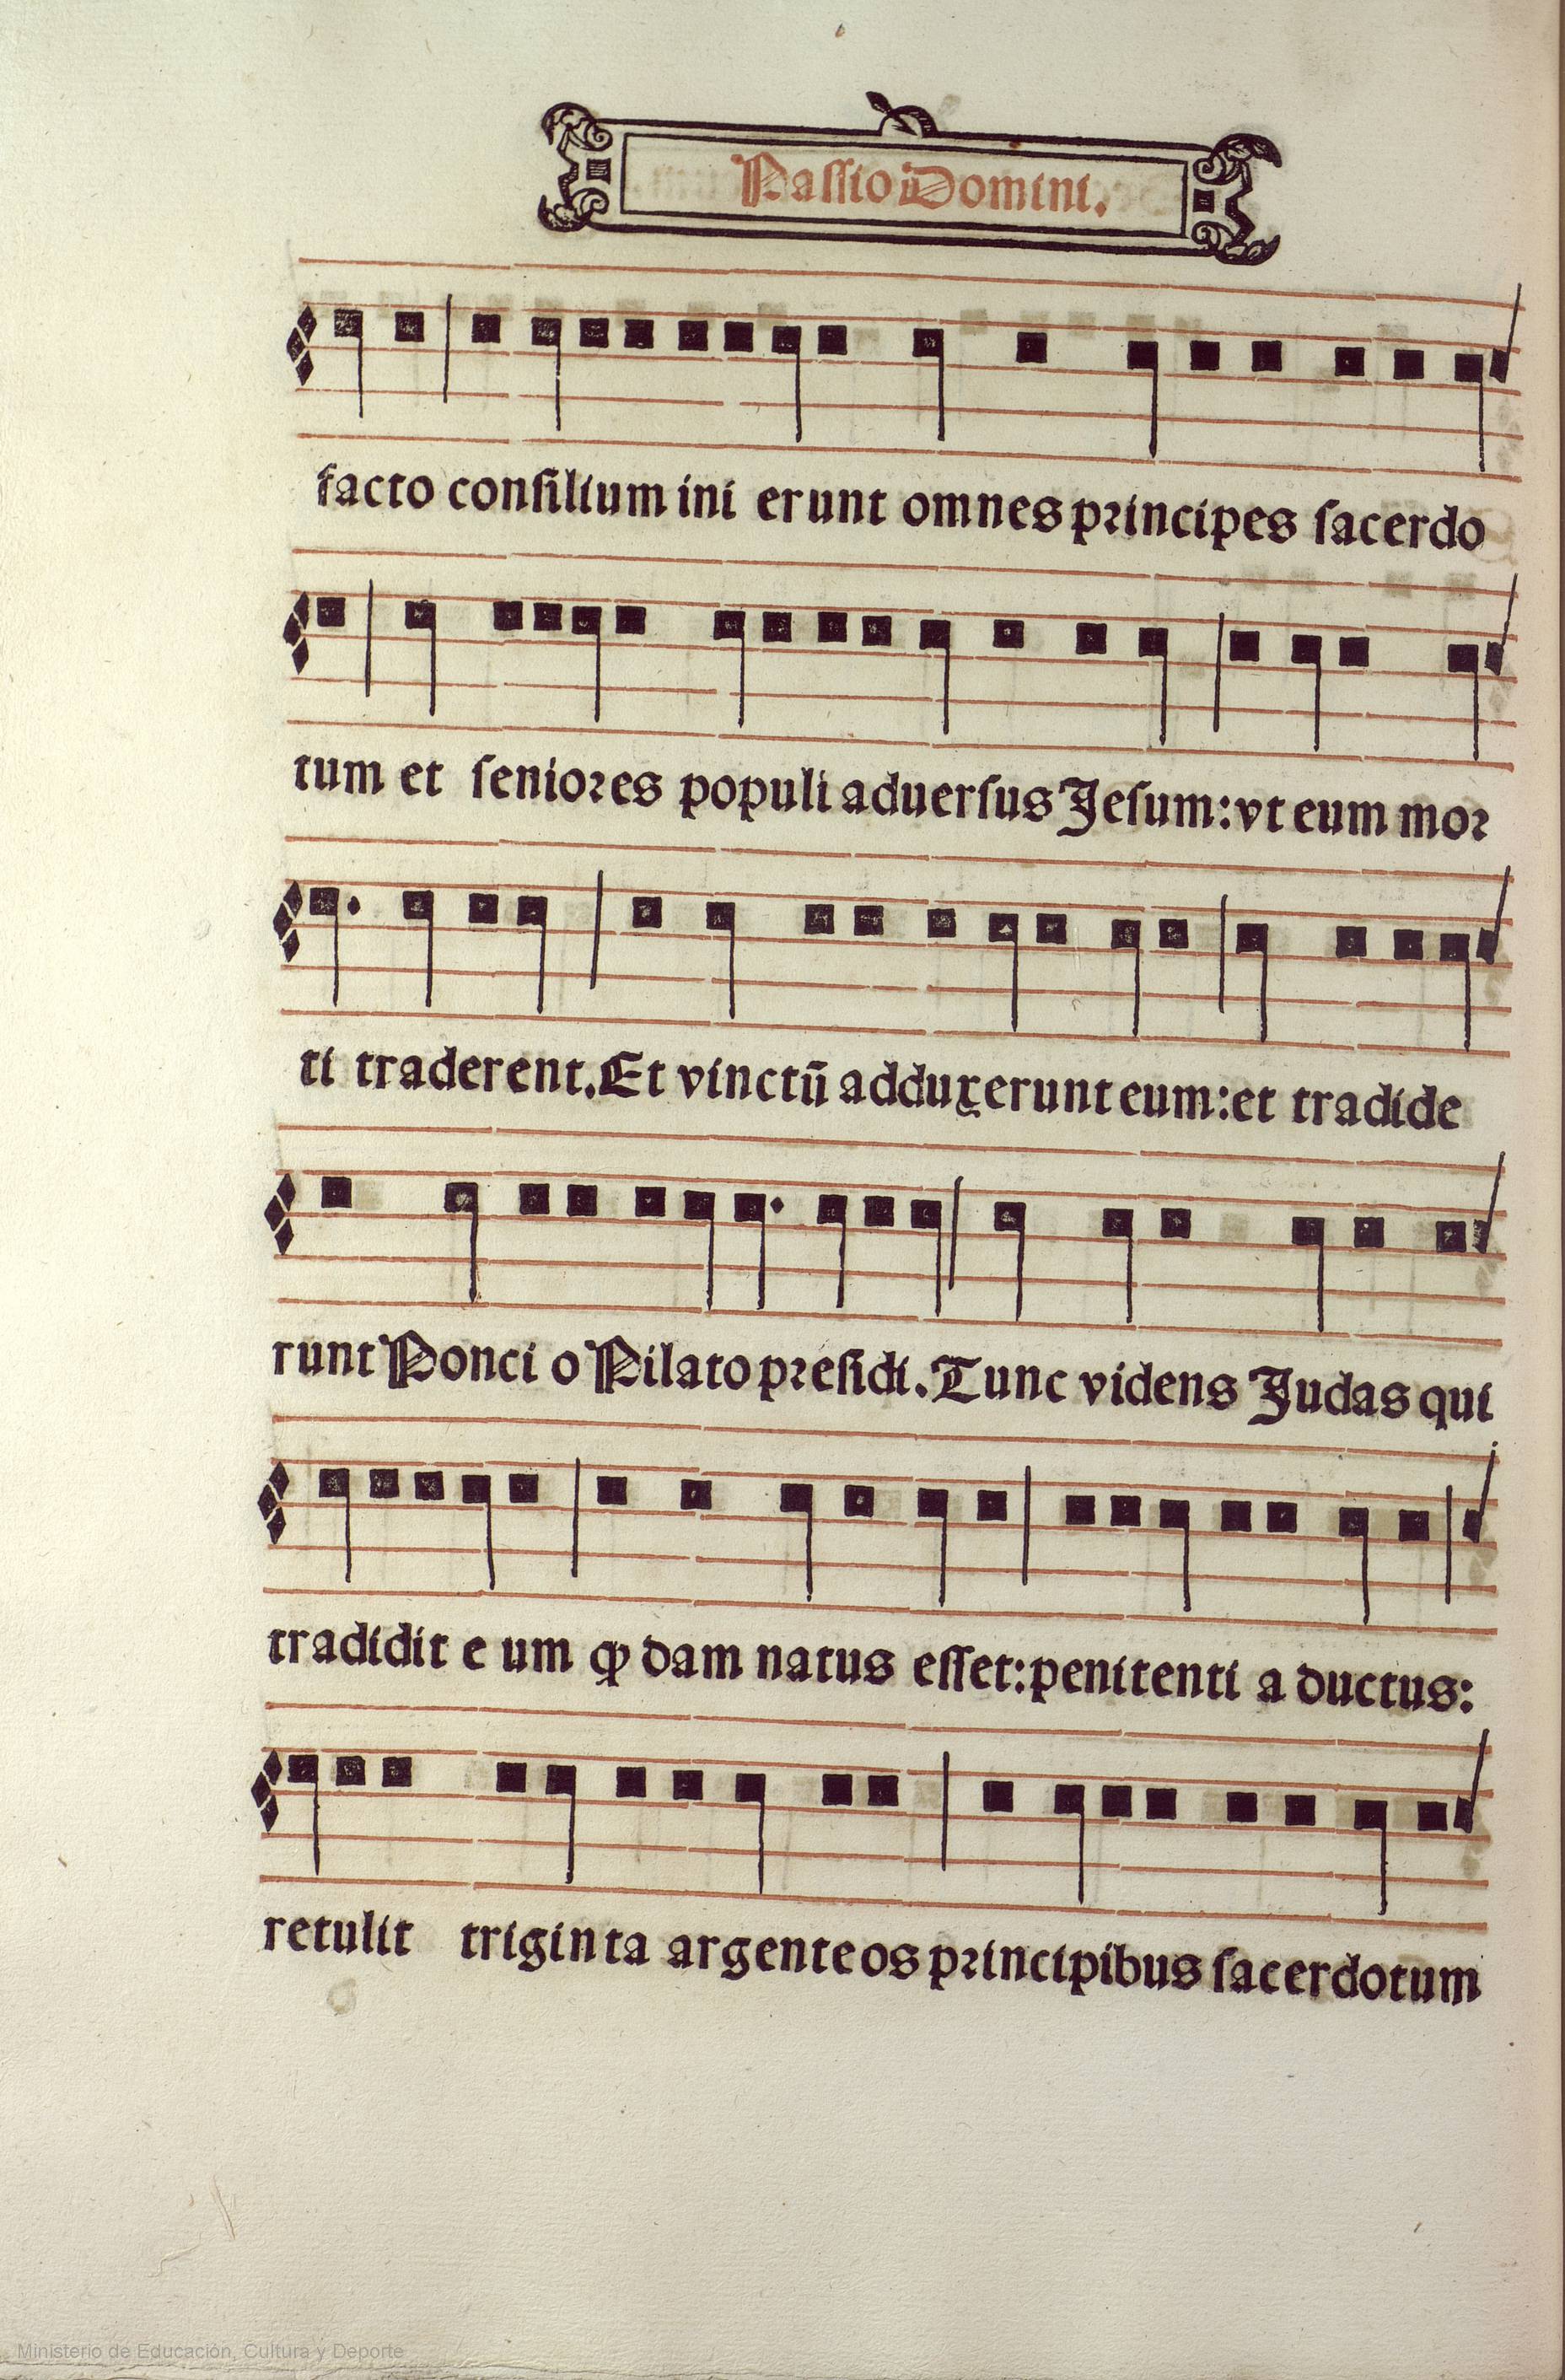 Passio Domini.
facto consilium ini erunt omnes principes sacerdo
tum et seniores populi aduersus Jesum:vt eum mor
ti traderent. Et vinctū adduxerunt eum:et tradide
runt Ponci o Pilato presidi. Tunc videns Judas qui
tradidit e um ꝙ dam natus esset:penitenti a ductus:
retulit triginta argenteos principibus sacerdotum
Ministerio de Educación, Cultura y Deporte